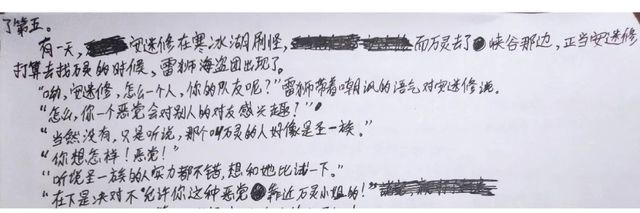 了第五。
有一天,安迷修在寒冰湖刷怪,而万灵去了峡谷那边,正当安迷修
打算去找万灵的时候,雷狮海盗团出现了。
“呦,安迷修,怎么一个人,你的队友呢?”雷狮带着嘲讽的语气对安迷修说。
“怎么,你一个恶党会对别人的队友感兴趣?”
“当然没有,只是听说,那个叫万灵的人好像是圣一族。”
“你想怎样!恶党!”
“听说圣一族的人实力都不错,想和她比试一下。”
“在下是决对不允许你这种恶党靠近万灵小姐的!”